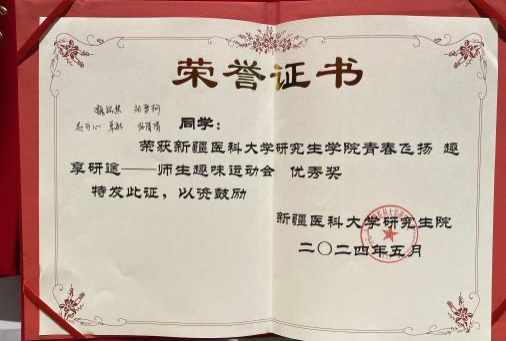 荣誉证书
同学：
荣获新疆医科大学研究生学院青春飞扬 趣
享研途——师生趣味运动会 优秀奖
特发此证，以资鼓励
新疆医科大学研究生院
二〇二四年五月